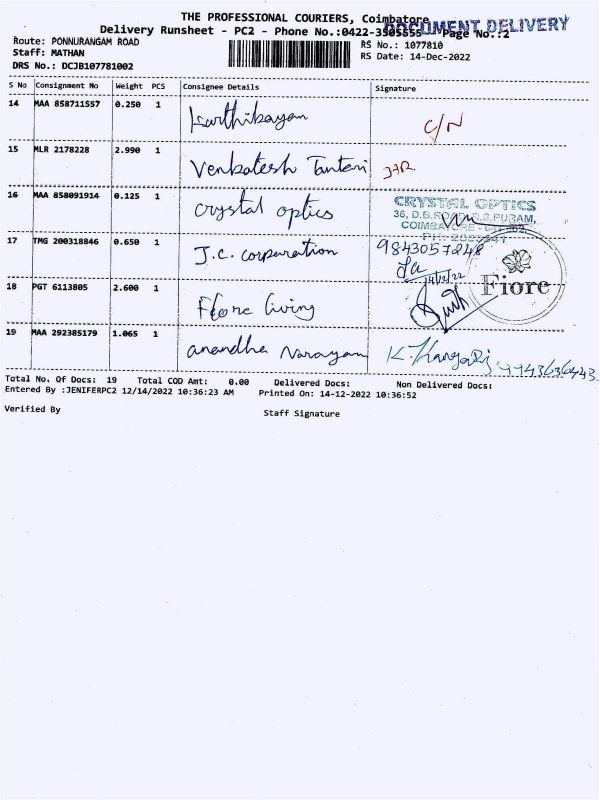 THE PROFESSIONAL COURIERS, Coimbatore
Delivery Runsheet - PC2 - Phone No.:0422-3505555 Page No.:2
DOCUMENT DELIVERY
Route: PONNURANGAM ROAD
RS No.: 1077810
Staff: MATHAN
RS Date: 14-Dec-2022
DRS No.: DCJB107781002
S No Consignment No Weight PCS Consignee Details Signature
14 MAA 858711557 0.250 1 Karthikayan C/N
15 MLR 2178228 2.990 1 Venkatesh Tantari
16 MAA 858091914 0.125 1 crystal optics
CRYSTAL OPTICS
36, D.B.ROAD, R.S.PURAM,
17 TMG 200318846 0.650 1 J.C. corparation 9843057248
14/12/22
18 PGT 6113805 2.600 1 Fiore living
Fiore
19 MAA 292385179 1.065 1 anandha Narayam 9943636443
Total No. Of Docs: 19 Total COD Amt: 0.00 Delivered Docs: Non Delivered Docs:
Entered By :JENIFERPC2 12/14/2022 10:36:23 AM Printed On: 14-12-2022 10:36:52
Verified By
Staff Signature